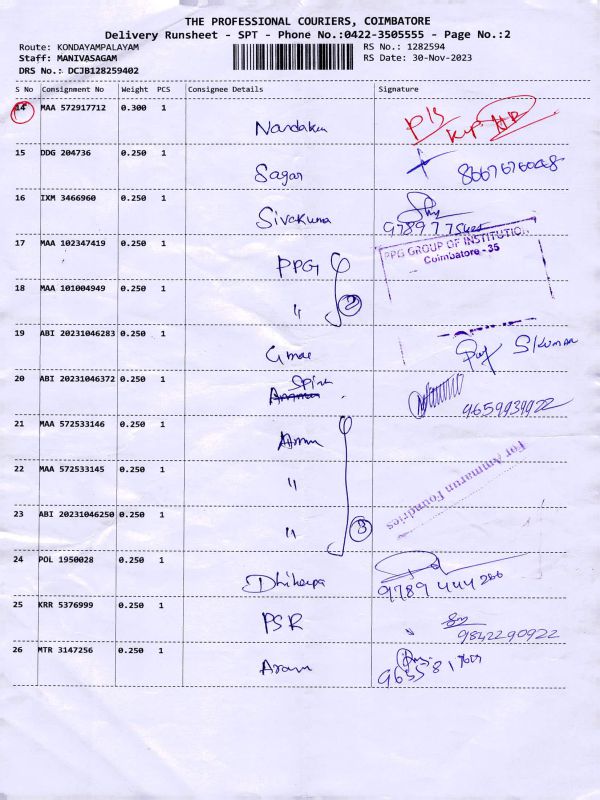 THE PROFESSIONAL COURIERS, COIMBATORE
Delivery Runsheet - SPT - Phone No.:0422-3505555 - Page No.:2
Route: KONDAYAMPALAYAM RS No.: 1282594
Staff: MANIVASAGAM RS Date: 30-Nov-2023
DRS No.: DCJB128259402
S No Consignment No Weight PCS Consignee Details Signature
14 MAA 572917712 0.300 1
15 DDG 204736 0.250 1 Sagar
16 IXM 3466960 0.250 1 Sivakuma
17 MAA 102347419 0.250 1 PPG PPG GROUP OF INSTITUTION
Coimbatore - 35
18 MAA 101004949 0.250 1 " 2
19 ABI 20231046283 0.250 1 S Kumar
20 ABI 20231046372 0.250 1 9659939922
21 MAA 572533146 0.250 1
22 MAA 572533145 0.250 1 " For Ammarun Foundries
23 ABI 20231046250 0.250 1 " 3
24 POL 1950028 0.250 1 9789 444 266
25 KRR 5376999 0.250 1 PSR 9842290922
26 MTR 3147256 0.250 1